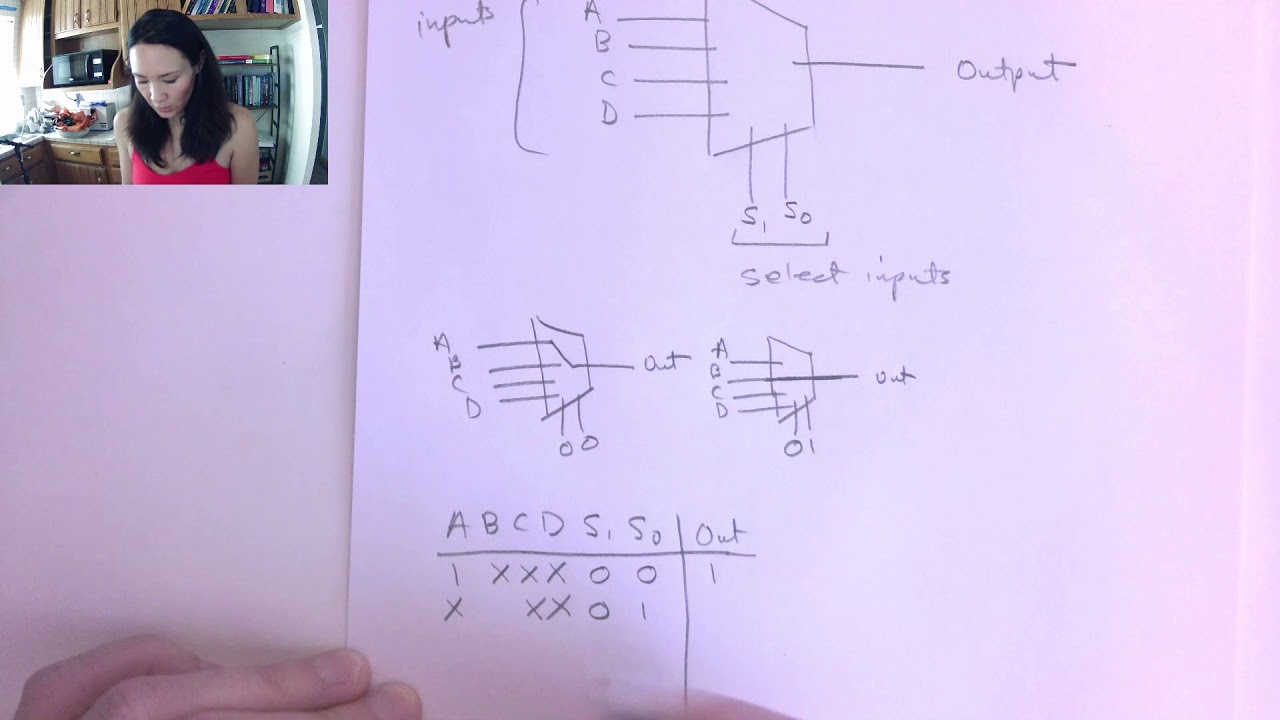 inputs
A
B
C
D
Output
S1 S0
select inputs
A
B
C
D
Out
0 0
A
B
C
D
Out
0 1
A B C D S1 S0 Out
1 X X X 0 0 1
X X X 0 1